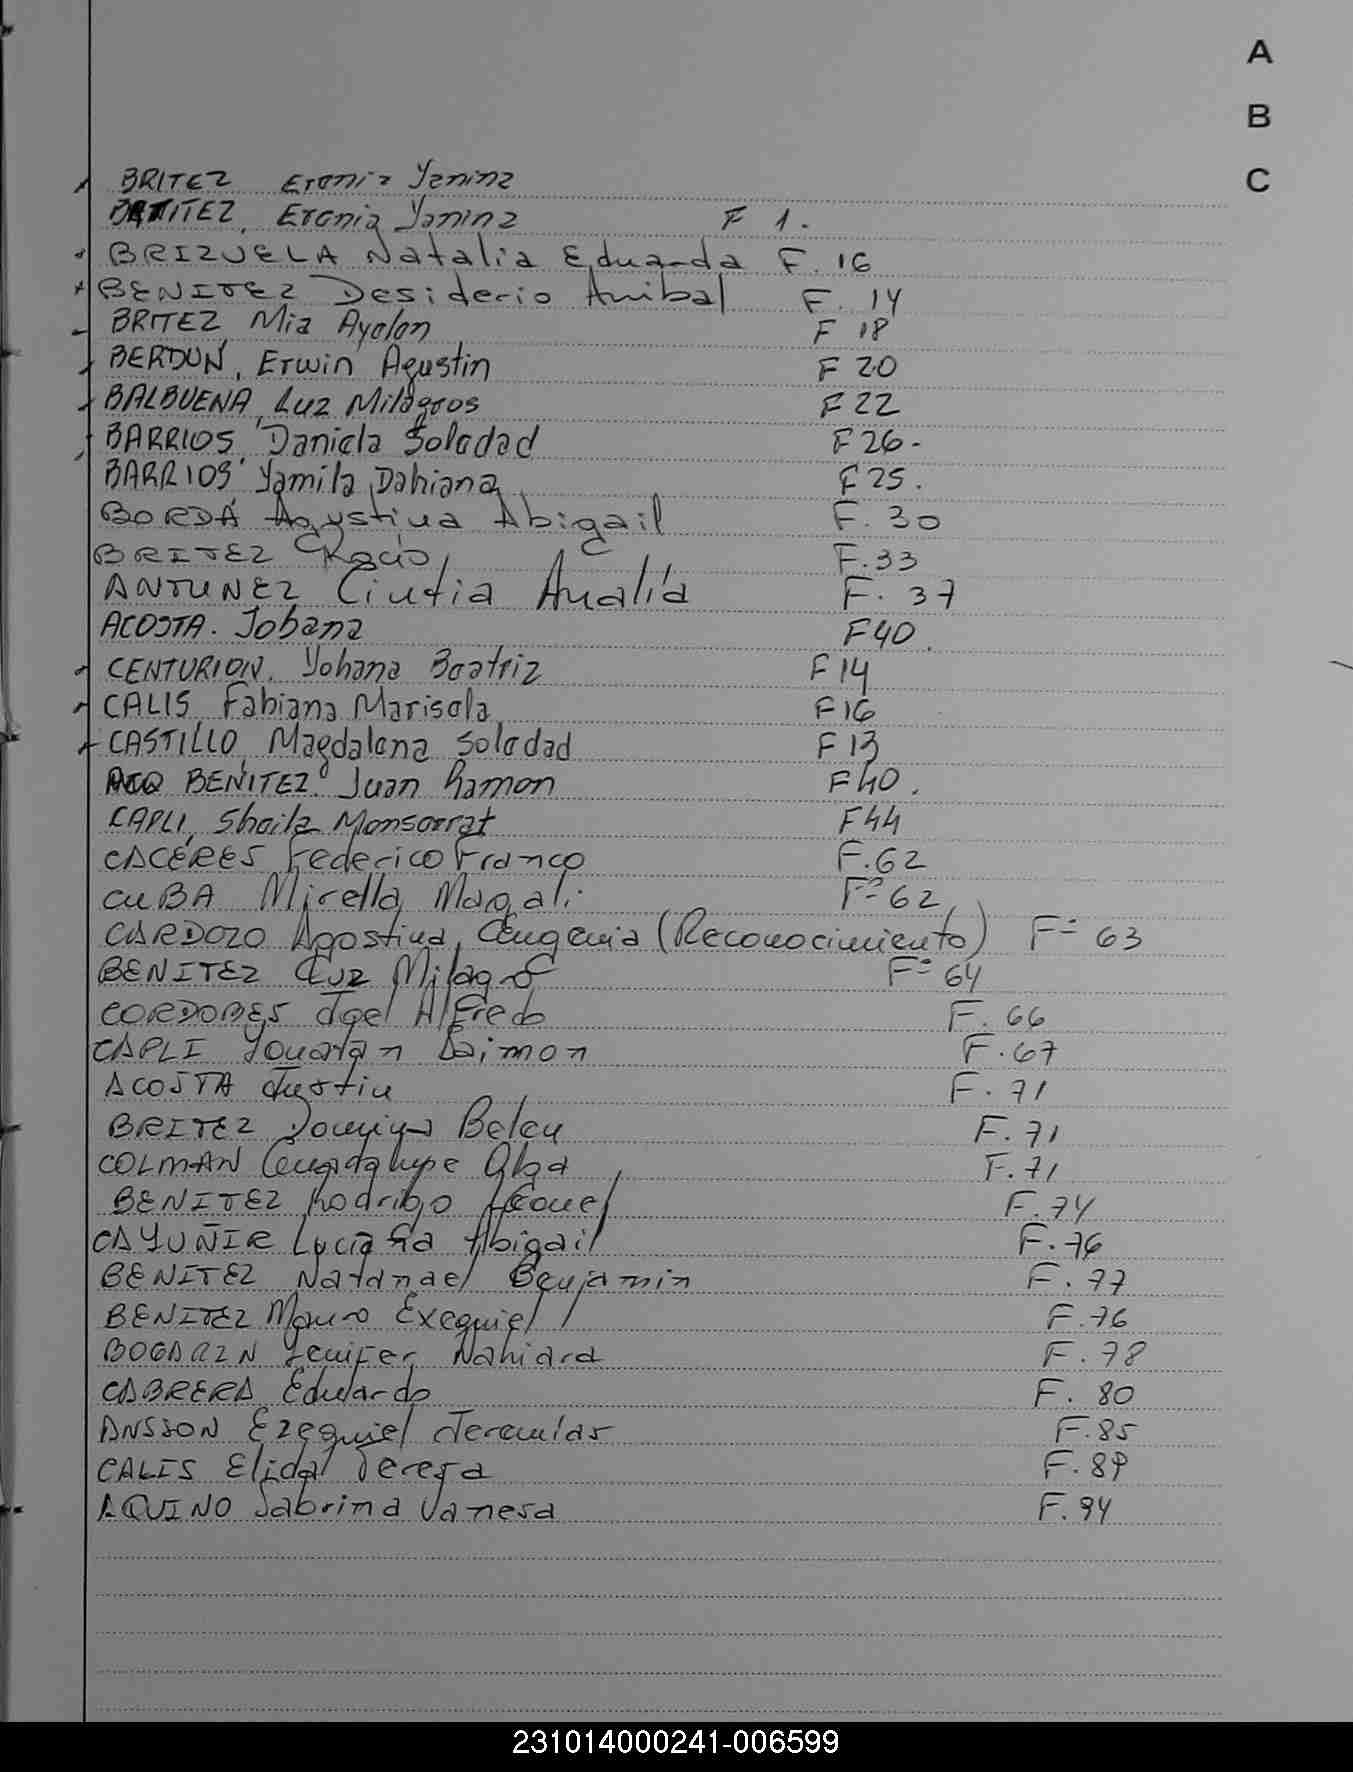 A
B
C
BRITEZ Erenia Yanina
BRITEZ, Erenia Yanina F 1.
BRIZUELA Natalia Eduarda F. 16
BENITEZ Desiderio Anibal F. 14
BRITEZ Mia Ayelen F 18
BERDUN, Erwin Agustin F 20
BALBUENA, Luz Milagros F 22
BARRIOS, Daniela Soledad F 26-
BARRIOS Yamila Dahiana F 25.
BORDÁ Agustina Abigail F. 30
BRITEZ Rocio F. 33
ANTUNEZ Cintia Analía F. 37
ACOSTA. Johana F 40.
CENTURION, Yohana Beatriz F 14
CALIS, Fabiana Marisela F 16
CASTILLO, Magdalena Soledad F 13
BENITEZ. Juan Ramon F 40.
CAPLI, Sheila Monserrat F 44
CACÉRES Federico Franco F. 62
CUBA Mirella Magali F= 62
CARDOZO Agostina, Eugenia (Reconocimiento) F= 63
BENITEZ Luz Milagro F= 64
CORDOBES Joel Alfredo F. 66
CAPLI Yonatan Daimon F. 67
ACOSTA Justin F. 71
BRITEZ Belen F. 71
COLMAN Guadalupe Alba F. 71
BENITEZ Rodrigo F. 74
CAYUÑIR Luciana Abigail F. 76
BENITEZ Natanael Benjamin F. 77
BENITEZ Mauro Exequiel F. 76
BOGARIN Yenifer Nahiara F. 78
CABRERA Eduardo F. 80
ANSSON Ezequiel Jeremías F. 85
CALIS Elida Teresa F. 89
AQUINO Sabrina Vanesa F. 94
231014000241-006599